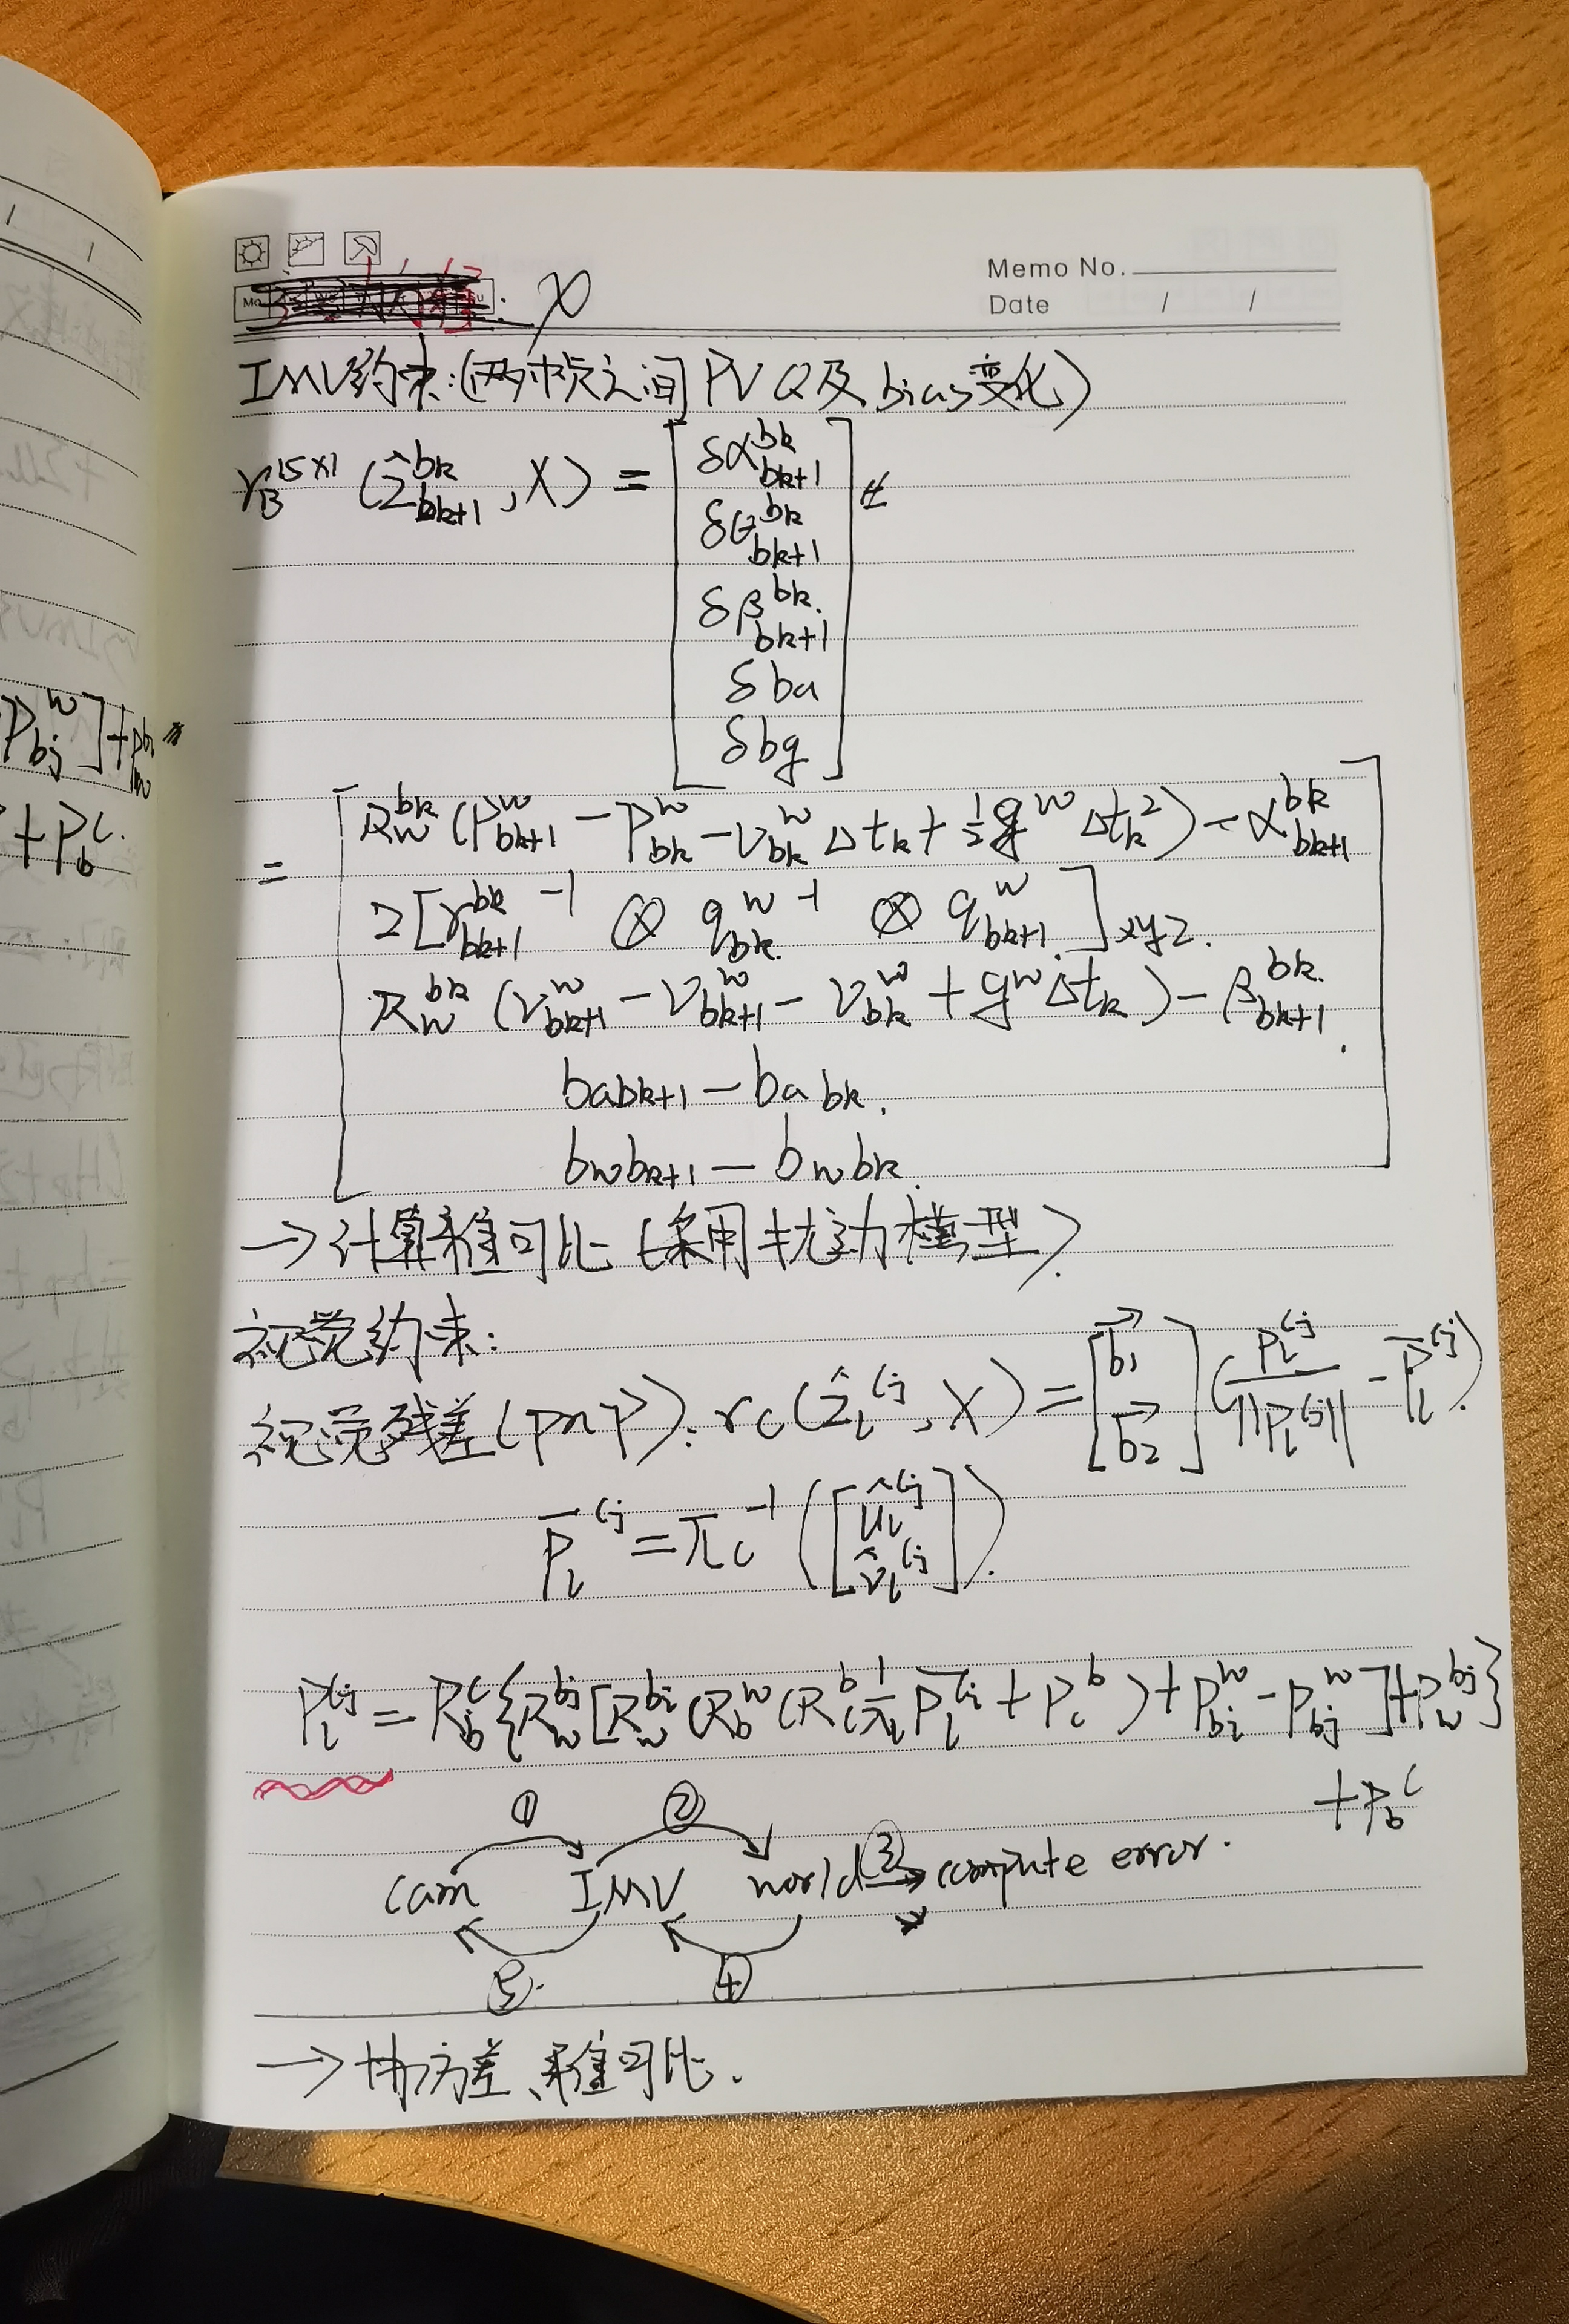 Memo No.
Date / /
IMU约束:(两帧之间PVQ及bias变化)
r_B^{15×1} (ẑ_{bk+1}^{bk}, X) = [δα_{bk+1}^{bk}
δθ_{bk+1}^{bk}
δβ_{bk+1}^{bk}
δba
δbg]
= [R_w^{bk} (P_{bk+1}^w - P_{bk}^w - V_{bk}^w Δt_k + ½ g^w Δt_k^2) - α_{bk+1}^{bk}
2[γ_{bk+1}^{bk -1} ⊗ q_{bk}^{w -1} ⊗ q_{bk+1}^w]_{xyz}.
R_w^{bk} (V_{bk+1}^w - V_{bk+1}^w - V_{bk}^w + g^w Δt_k) - β_{bk+1}^{bk}.
babk+1 - ba bk.
bwbk+1 - bwbk.]
→计算雅可比(采用扰动模型)
视觉约束:
视觉残差(pnp): r_c(ẑ_l^{cj}, X) = [b⃗_1 b⃗_2] (P_l^{cj} / ||P_l^{cj}|| - P̄_l^{cj}).
P̄_l^{cj} = π_c^{-1} ([û_l^{cj} v̂_l^{cj}]).
P_l^{cj} = R_b^c {R_w^{bj} [R_w^{bi} (R_b^w (R_c^b 1/λ_l P̄_l^{ci} + P_c^b) + P_{bi}^w - P_{bj}^w] + P_w^{bj}}
+ P_b^c
① ②
cam IMU world ③→ compute error.
⑤ ④
→协方差、雅可比.
P_{bj}^w]+
+P_b^c.